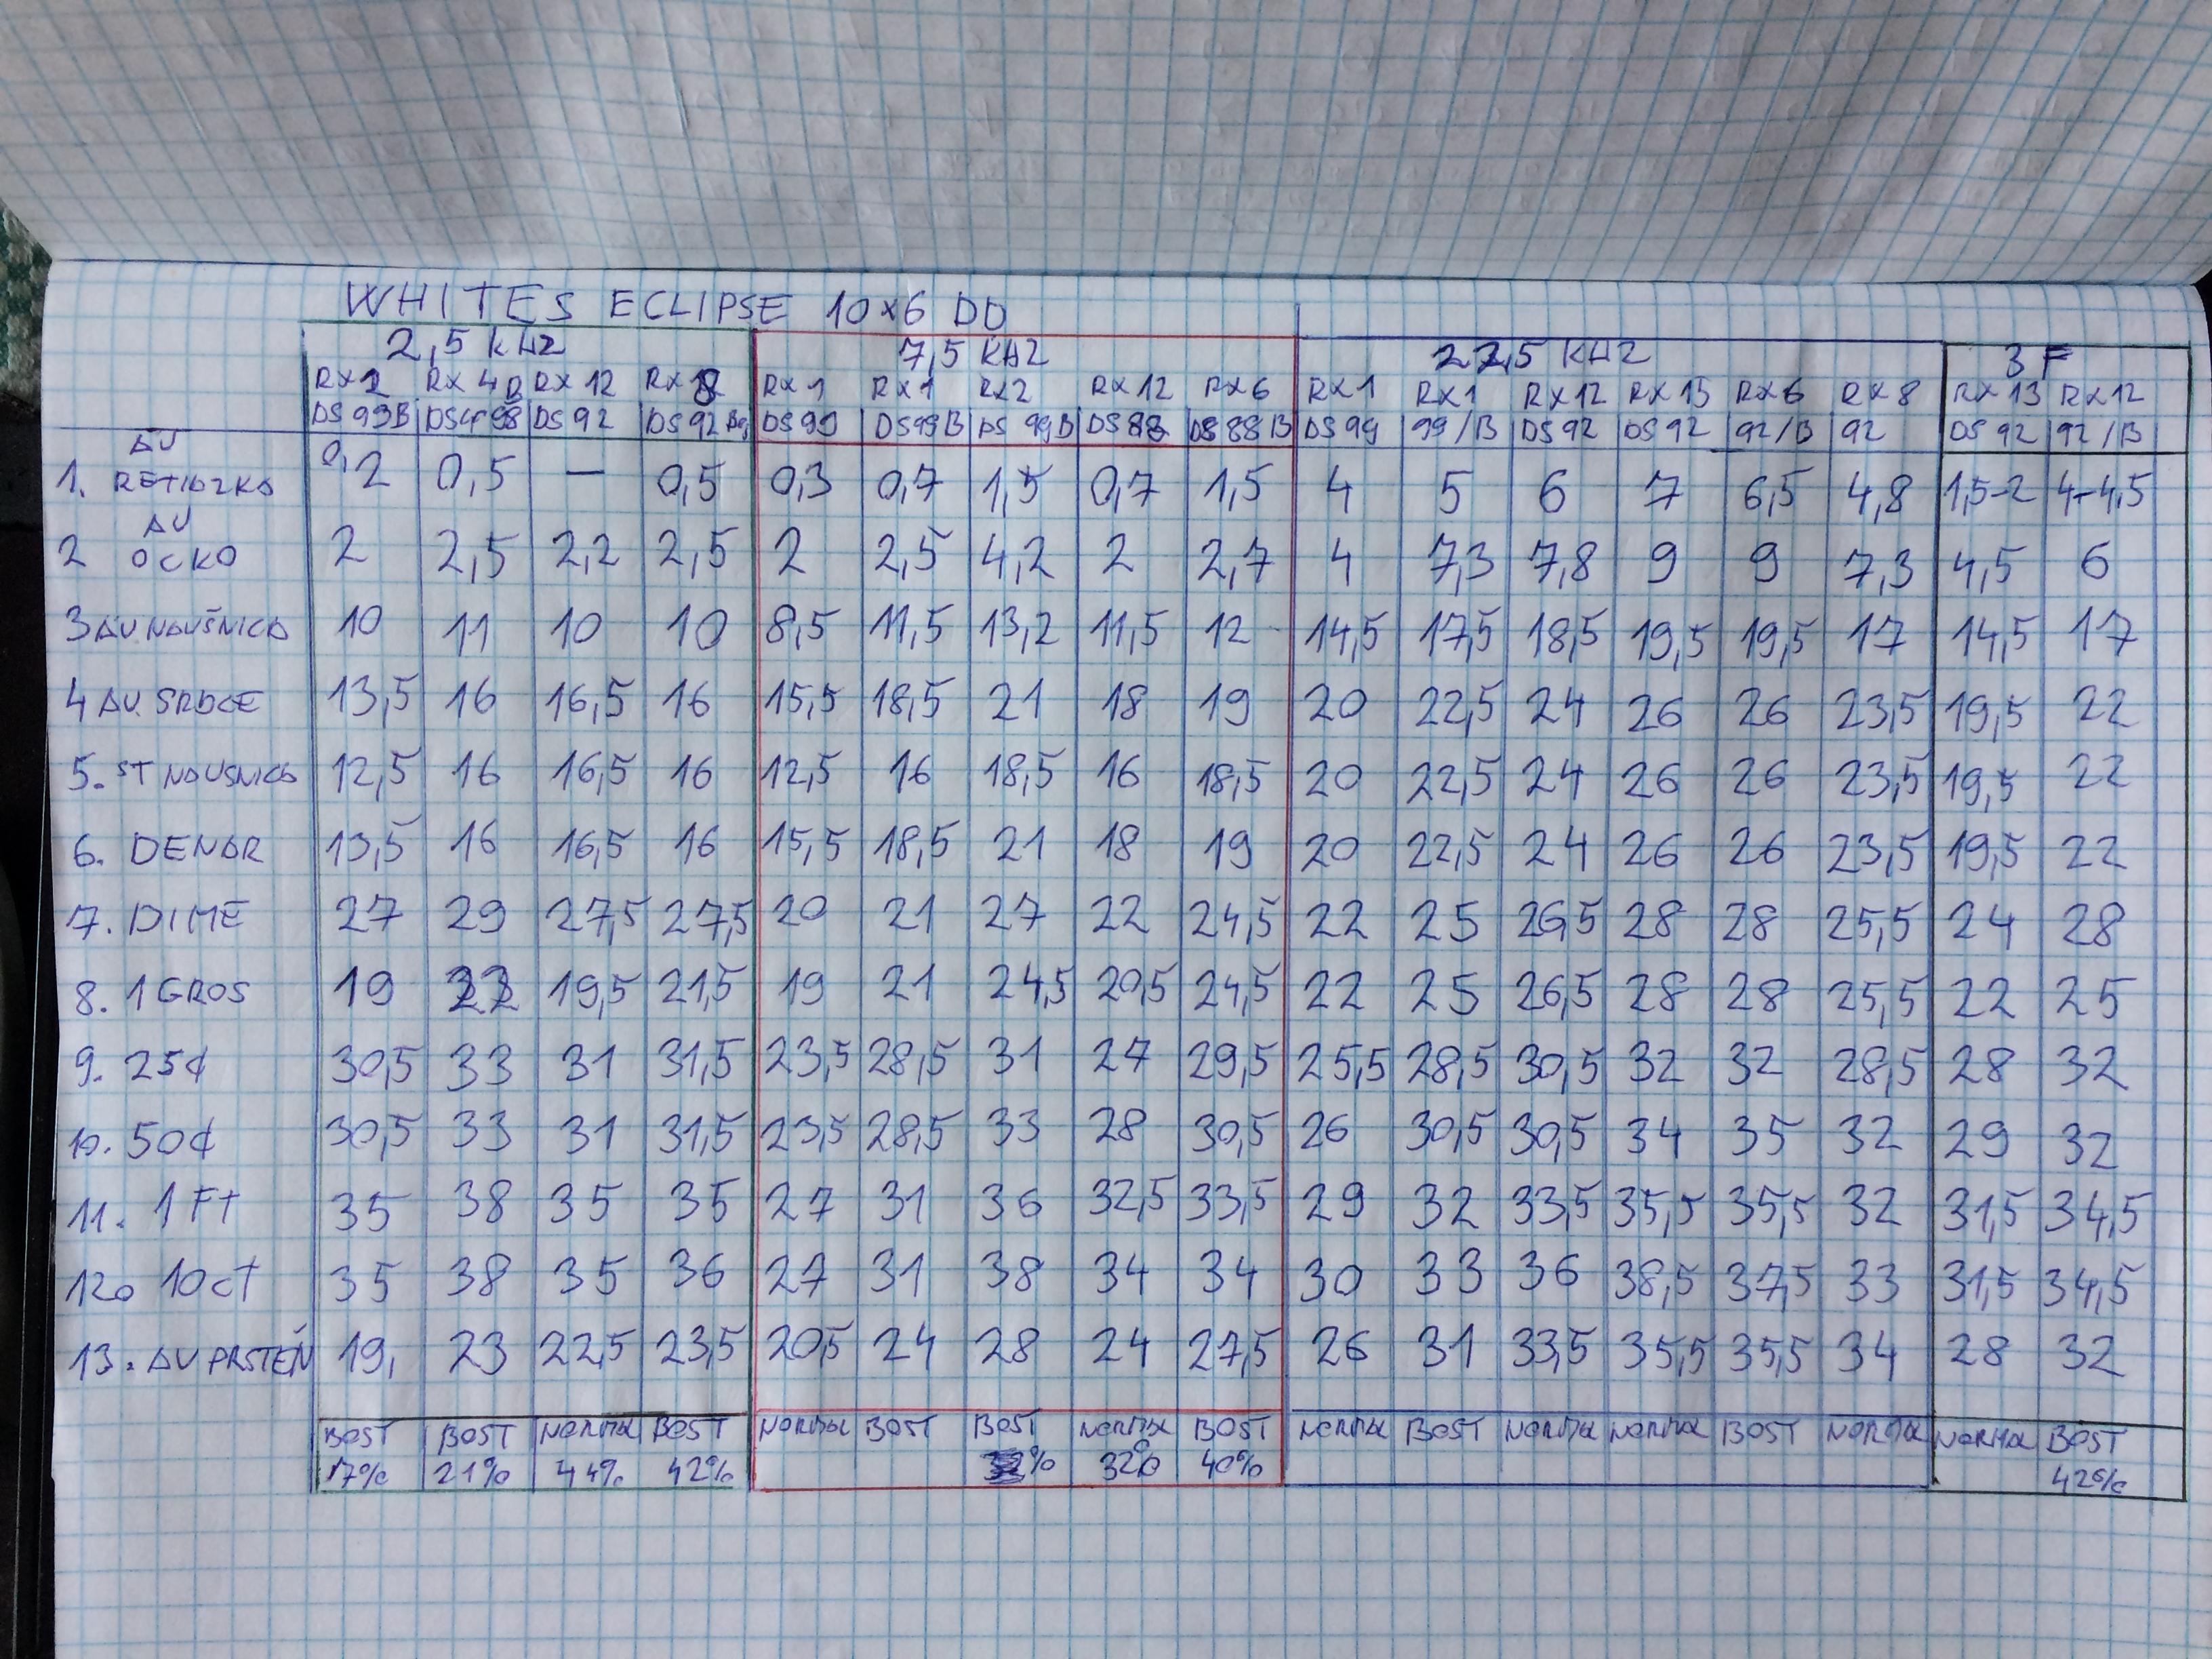 WHITES ECLIPSE 10x6 DD
2,5 KHZ 7,5 KHZ 22,5 KHZ 3F
RX2 RX4 RX12 RX8 RX1 RX1 RX2 RX12 RX6 RX1 RX1 RX12 RX15 RX6 RX8 RX13 RX12
DS99B DS 98 DS92 DS92 DS99 DS99B DS 99B DS88 DS88B DS99 99/B DS92 DS92 92/B 92 DS92 92/B
AU
1. RETIAZKA 0,2 0,5 — 0,5 0,3 0,7 1,5 0,7 1,5 4 5 6 7 6,5 4,8 1,5-2 4-4,5
AU
2 OCKO 2 2,5 2,2 2,5 2 2,5 4,2 2 2,7 4 7,3 7,8 9 9 7,3 4,5 6
3 AU NAUŠNICA 10 11 10 10 8,5 11,5 13,2 11,5 12 14,5 17,5 18,5 19,5 19,5 17 14,5 17
4 AU. SRDCE 13,5 16 16,5 16 15,5 18,5 21 18 19 20 22,5 24 26 26 23,5 19,5 22
5. ST NAUSNICA 12,5 16 16,5 16 12,5 16 18,5 16 18,5 20 22,5 24 26 26 23,5 19,5 22
6. DENAR 13,5 16 16,5 16 15,5 18,5 21 18 19 20 22,5 24 26 26 23,5 19,5 22
7. DIME 27 29 27,5 27,5 20 21 27 22 24,5 22 25 26,5 28 28 25,5 24 28
8. 1 GROS 19 22 19,5 21,5 19 21 24,5 20,5 24,5 22 25 26,5 28 28 25,5 22 25
9. 25¢ 30,5 33 31 31,5 23,5 28,5 31 27 29,5 25,5 28,5 30,5 32 32 28,5 28 32
10. 50¢ 30,5 33 31 31,5 23,5 28,5 33 28 30,5 26 30,5 30,5 34 35 32 29 32
11. 1 Ft 35 38 35 35 27 31 36 32,5 33,5 29 32 33,5 35,5 35,5 32 31,5 34,5
12. 10 ct 35 38 35 36 27 31 38 34 34 30 33 36 38,5 37,5 33 31,5 34,5
13. AU PRSTEŇ 19, 23 22,5 23,5 20,5 24 28 24 27,5 26 31 33,5 35,5 35,5 34 28 32
BOST BOST NORMA BOST NORMA BOST BOST NORMA BOST NORMA BOST NORMA NORMA BOST NORMA NORMA BOST
17% 21% 44% 42% % 32% 40% 42%